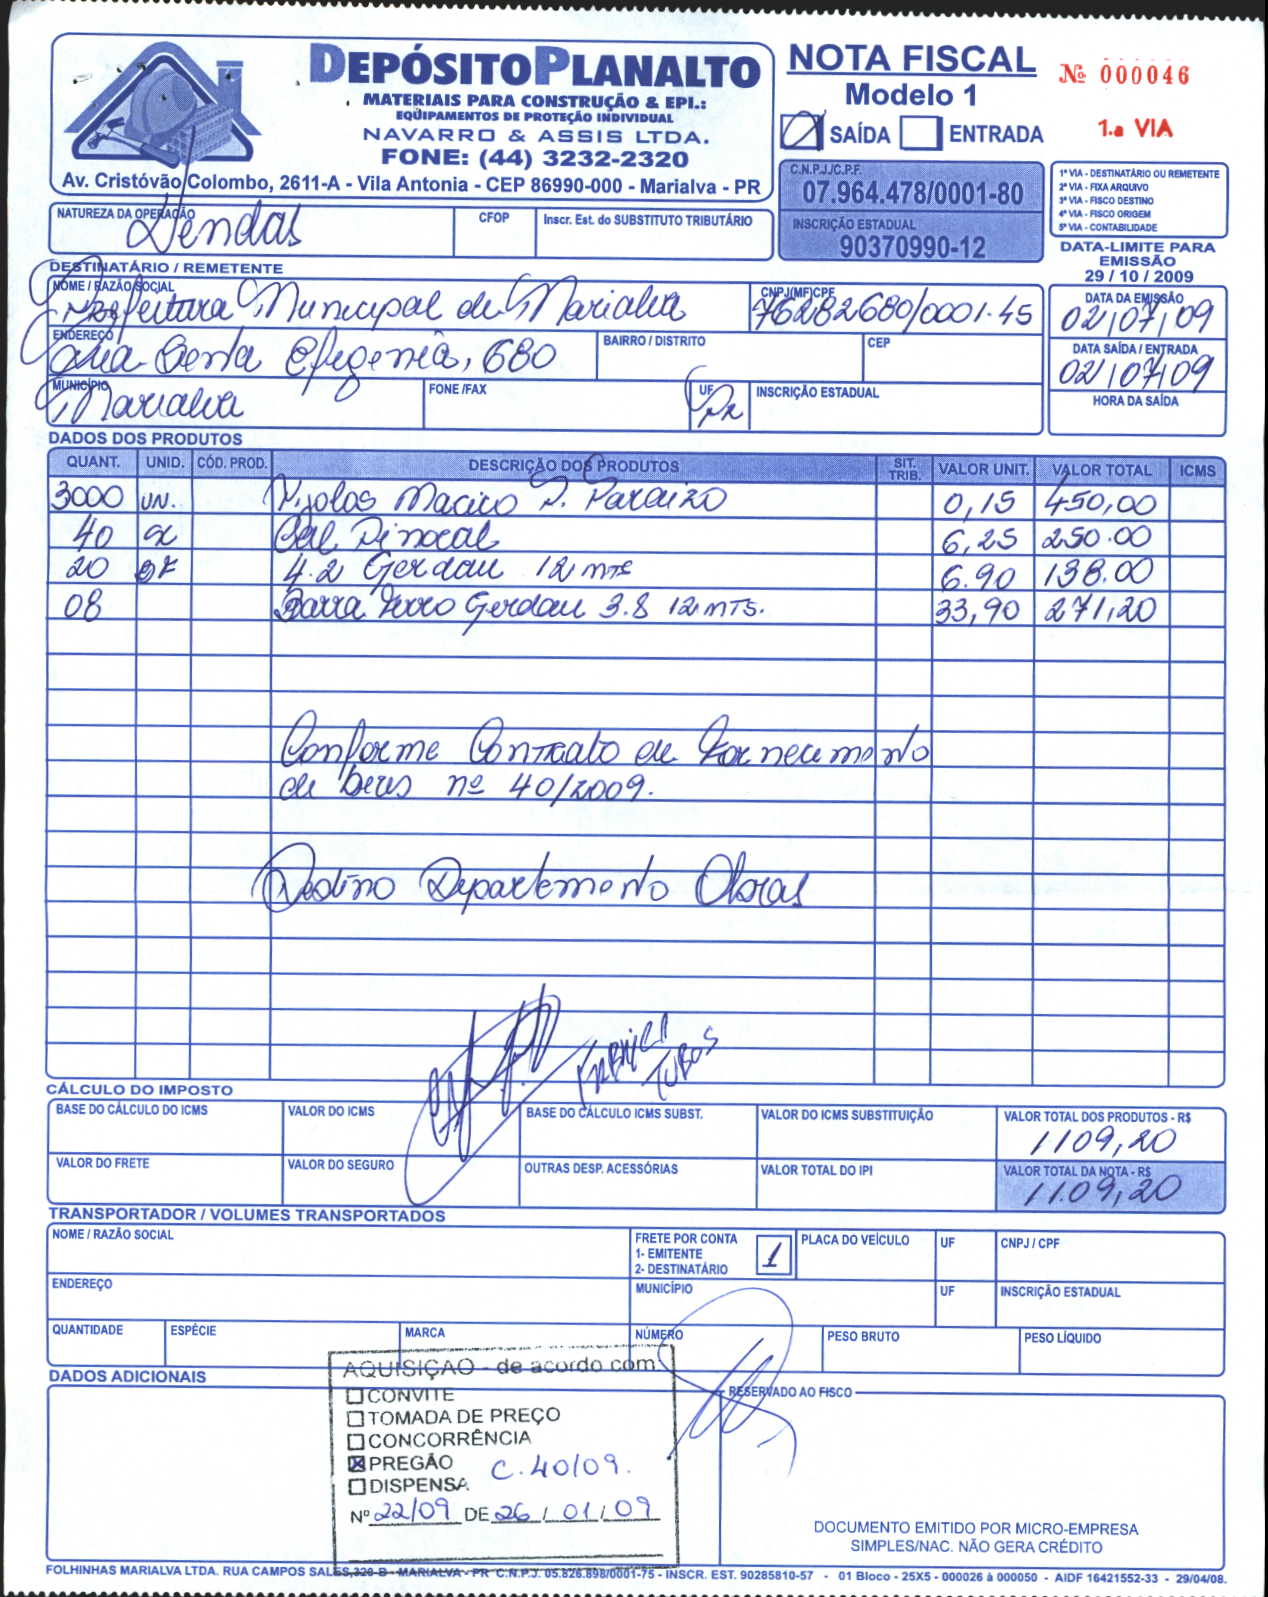 DEPÓSITO PLANALTO
MATERIAIS PARA CONSTRUÇÃO & EPI.:
EQÜIPAMENTOS DE PROTEÇÃO INDIVIDUAL
NAVARRO & ASSIS LTDA.
FONE: (44) 3232-2320
Av. Cristóvão Colombo, 2611-A - Vila Antonia - CEP 86990-000 - Marialva - PR
NOTA FISCAL
Modelo 1
Nº 000046
SAÍDA ENTRADA
1.a VIA
C.N.P.J./C.P.F.
07.964.478/0001-80
INSCRIÇÃO ESTADUAL
90370990-12
1ª VIA - DESTINATÁRIO OU REMETENTE
2ª VIA - FIXA ARQUIVO
3ª VIA - FISCO DESTINO
4ª VIA - FISCO ORIGEM
5ª VIA - CONTABILIDADE
DATA-LIMITE PARA
EMISSÃO
29 / 10 / 2009
NATUREZA DA OPERAÇÃO
Vendas
CFOP
Inscr. Est. do SUBSTITUTO TRIBUTÁRIO
DESTINATÁRIO / REMETENTE
NOME / RAZÃO SOCIAL
Prefeitura Municipal de Marialva
CNPJ(MF)CPF
76282680/0001.45
DATA DA EMISSÃO
02/07/09
ENDEREÇO
Rua Santa Efigenia, 680
BAIRRO / DISTRITO
CEP
DATA SAÍDA / ENTRADA
02/07/09
MUNICÍPIO
Marialva
FONE /FAX
UF
Pr
INSCRIÇÃO ESTADUAL
HORA DA SAÍDA
DADOS DOS PRODUTOS
QUANT. UNID. CÓD. PROD. DESCRIÇÃO DOS PRODUTOS SIT. TRIB. VALOR UNIT. VALOR TOTAL ICMS
3000 UN. Tijolos Macico S. Paraizo 0,15 450,00
40 sc Cal Pinocal 6,25 250.00
20 BR 4.2 Gerdau 12 mts 6.90 138.00
08 Barra Ferro Gerdau 3.8 12 mts. 33,90 271,20
Conforme Contrato de Fornecimento
de bens nº 40/2009.
Destino Departamento Obras
FABRICA
TUBOS
CÁLCULO DO IMPOSTO
BASE DO CÁLCULO DO ICMS
VALOR DO ICMS
BASE DO CÁLCULO ICMS SUBST.
VALOR DO ICMS SUBSTITUIÇÃO
VALOR TOTAL DOS PRODUTOS - R$
1109,20
VALOR DO FRETE
VALOR DO SEGURO
OUTRAS DESP. ACESSÓRIAS
VALOR TOTAL DO IPI
VALOR TOTAL DA NOTA - R$
1109,20
TRANSPORTADOR / VOLUMES TRANSPORTADOS
NOME / RAZÃO SOCIAL
FRETE POR CONTA
1- EMITENTE
2- DESTINATÁRIO
1
PLACA DO VEÍCULO
UF
CNPJ / CPF
ENDEREÇO
MUNICÍPIO
UF
INSCRIÇÃO ESTADUAL
QUANTIDADE
ESPÉCIE
MARCA
NÚMERO
PESO BRUTO
PESO LÍQUIDO
DADOS ADICIONAIS
AQUISIÇÃO - de acordo com
CONVITE
TOMADA DE PREÇO
CONCORRÊNCIA
PREGÃO C. 40/09.
DISPENSA
Nº 22/09 DE 26 / 01 / 09
RESERVADO AO FISCO
DOCUMENTO EMITIDO POR MICRO-EMPRESA
SIMPLES/NAC. NÃO GERA CRÉDITO
FOLHINHAS MARIALVA LTDA. RUA CAMPOS SALES,320-B - MARIALVA - PR C.N.P.J. 05.826.898/0001-75 - INSCR. EST. 90285810-57 - 01 Bloco - 25X5 - 000026 à 000050 - AIDF 16421552-33 - 29/04/08.